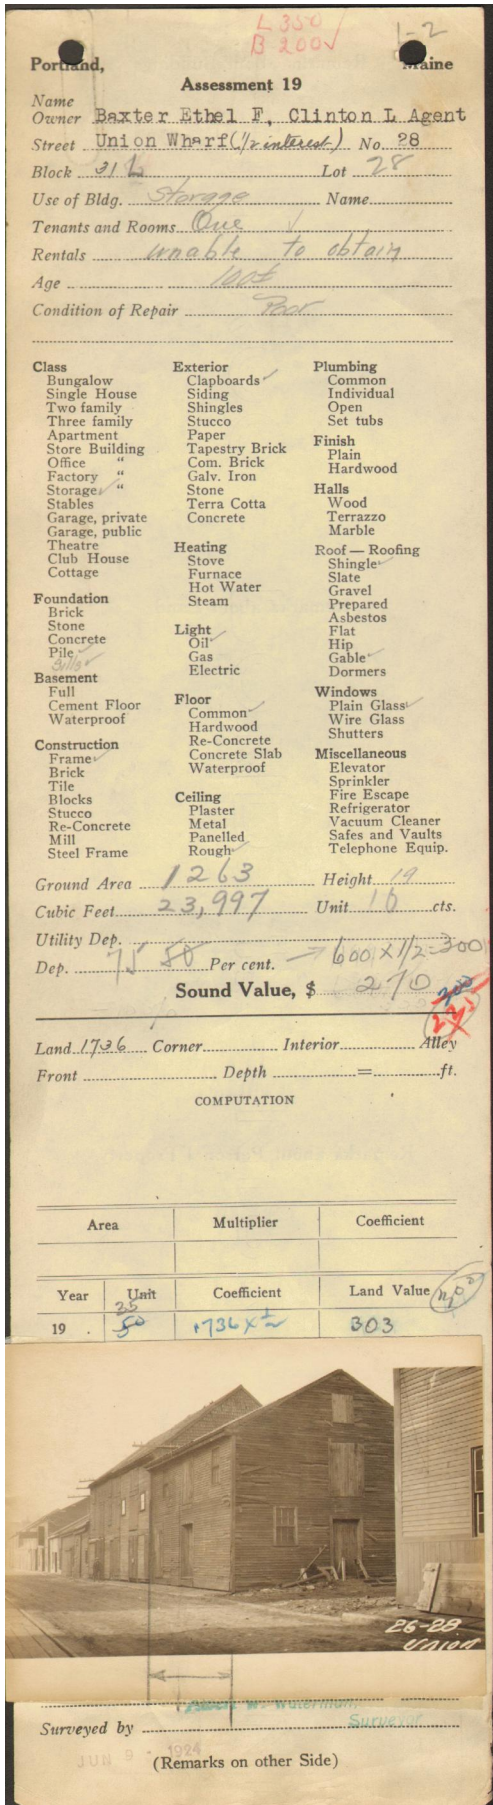 L 350
B 200✓
1-2
Portland, Maine
Assessment 19
Name
Owner Baxter Ethel F, Clinton L Agent
Street Union Wharf (1/2 interest) No. 28
Block 31 L Lot 28
Use of Bldg. Storage Name
Tenants and Rooms One ✓
Rentals unable to obtain
Age 100±
Condition of Repair Poor
Class
Bungalow
Single House
Two family
Three family
Apartment
Store Building
Office "
Factory "
Storage ✓ "
Stables
Garage, private
Garage, public
Theatre
Club House
Cottage
Foundation
Brick
Stone
Concrete
Pile ✓
Sills ✓
Basement
Full
Cement Floor
Waterproof
Construction
Frame ✓
Brick
Tile
Blocks
Stucco
Re-Concrete
Mill
Steel Frame
Exterior
Clapboards ✓
Siding
Shingles
Stucco
Paper
Tapestry Brick
Com. Brick
Galv. Iron
Stone
Terra Cotta
Concrete
Heating
Stove
Furnace
Hot Water
Steam
Light
Oil ✓
Gas
Electric
Floor
Common ✓
Hardwood
Re-Concrete
Concrete Slab
Waterproof
Ceiling
Plaster
Metal
Panelled
Rough ✓
Plumbing
Common
Individual
Open
Set tubs
Finish
Plain
Hardwood
Halls
Wood
Terrazzo
Marble
Roof — Roofing
Shingle ✓
Slate
Gravel
Prepared
Asbestos
Flat
Hip
Gable ✓
Dormers
Windows
Plain Glass ✓
Wire Glass
Shutters
Miscellaneous
Elevator
Sprinkler
Fire Escape
Refrigerator
Vacuum Cleaner
Safes and Vaults
Telephone Equip.
Ground Area 1263 Height 19
Cubic Feet 23,997 Unit 10 cts.
Utility Dep.
Dep. 75 50 Per cent. → 600 x 1/2 = 300
Sound Value, $ 270
200
Land 1736 Corner Interior Alley
Front Depth = ft.
COMPUTATION
Area Multiplier Coefficient
Year Unit Coefficient Land Value
35
19 50 1736 x 1/2 303
26-28
UNION
Albert W. Waterman,
Surveyor
Surveyed by
JUN 9 - 1924
(Remarks on other Side)